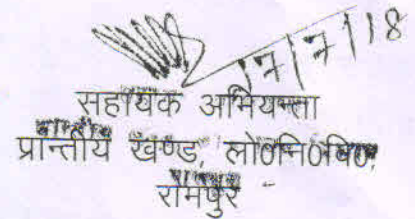 17/7/18
सहायक अभियन्ता
प्रान्तीय खण्ड, लो०नि०वि०,
रामपुर